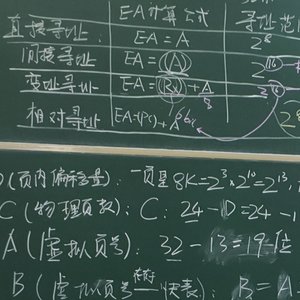 EA计算公式 寻址范
直接寻址 EA = A 2^8
间接寻址 EA = (A) 2^16
变址寻址 EA = (Rx) + A 2^16
8
相对寻址 EA=(PC) + A
D(页内偏移量): 一页是 8K = 2^3 × 2^10 = 2^13,
C (物理页数): C: 24 - D = 24 - 1
A (虚拟页号): 32 - 13 = 19位
B (虚拟页号 快表): B = A